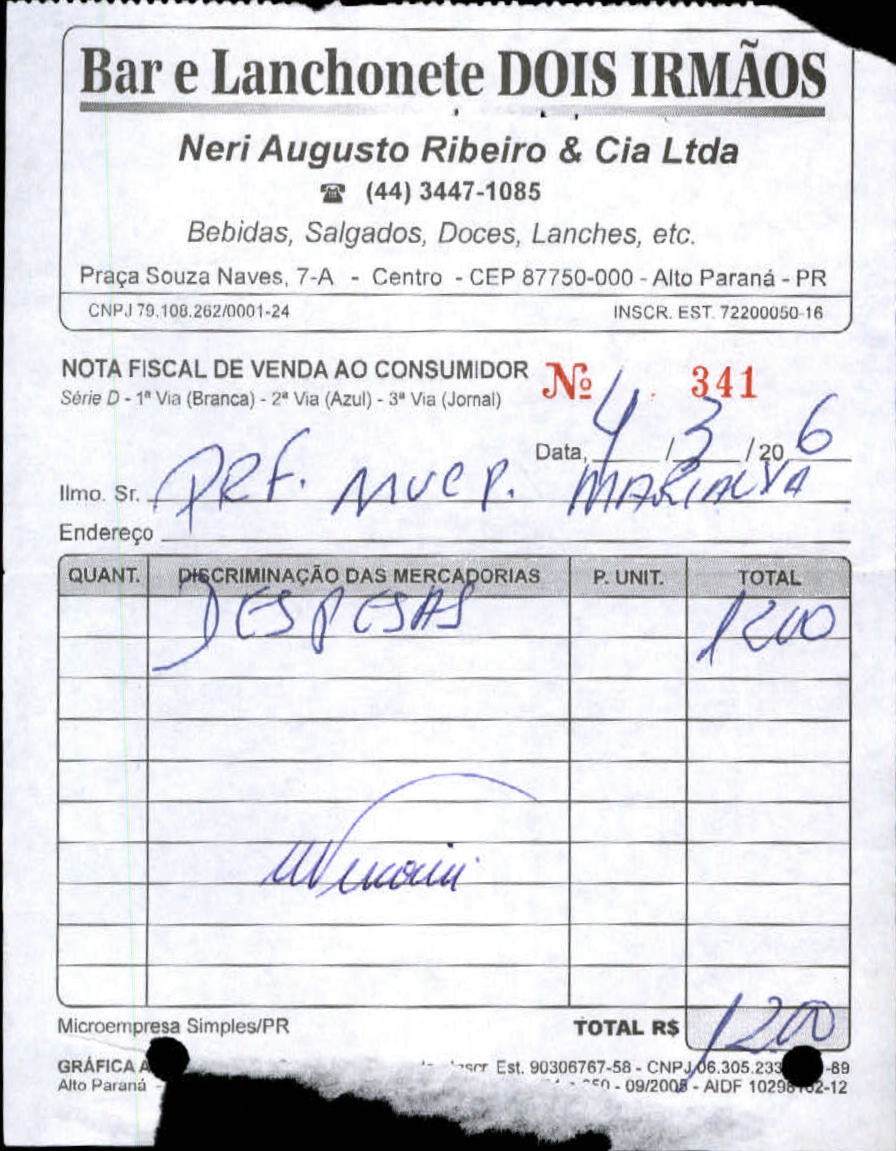 Bar e Lanchonete DOIS IRMÃOS
Neri Augusto Ribeiro & Cia Ltda
☎ (44) 3447-1085
Bebidas, Salgados, Doces, Lanches, etc.
Praça Souza Naves, 7-A - Centro - CEP 87750-000 - Alto Paraná - PR
CNPJ 79.108.262/0001-24 INSCR. EST. 72200050-16
NOTA FISCAL DE VENDA AO CONSUMIDOR Nº 341
Série D - 1ª Via (Branca) - 2ª Via (Azul) - 3ª Via (Jornal)
Data, 4 / 3 / 20 6
Ilmo. Sr. PREF. MUCP. MARIALVA
Endereço
QUANT. DISCRIMINAÇÃO DAS MERCADORIAS P. UNIT. TOTAL
DESPESAS 1200
Microempresa Simples/PR TOTAL R$ 1200
GRÁFICA A Est. 90306767-58 - CNPJ 06.305.233 -89
Alto Paraná - - 09/2005 - AIDF 102981 2-12